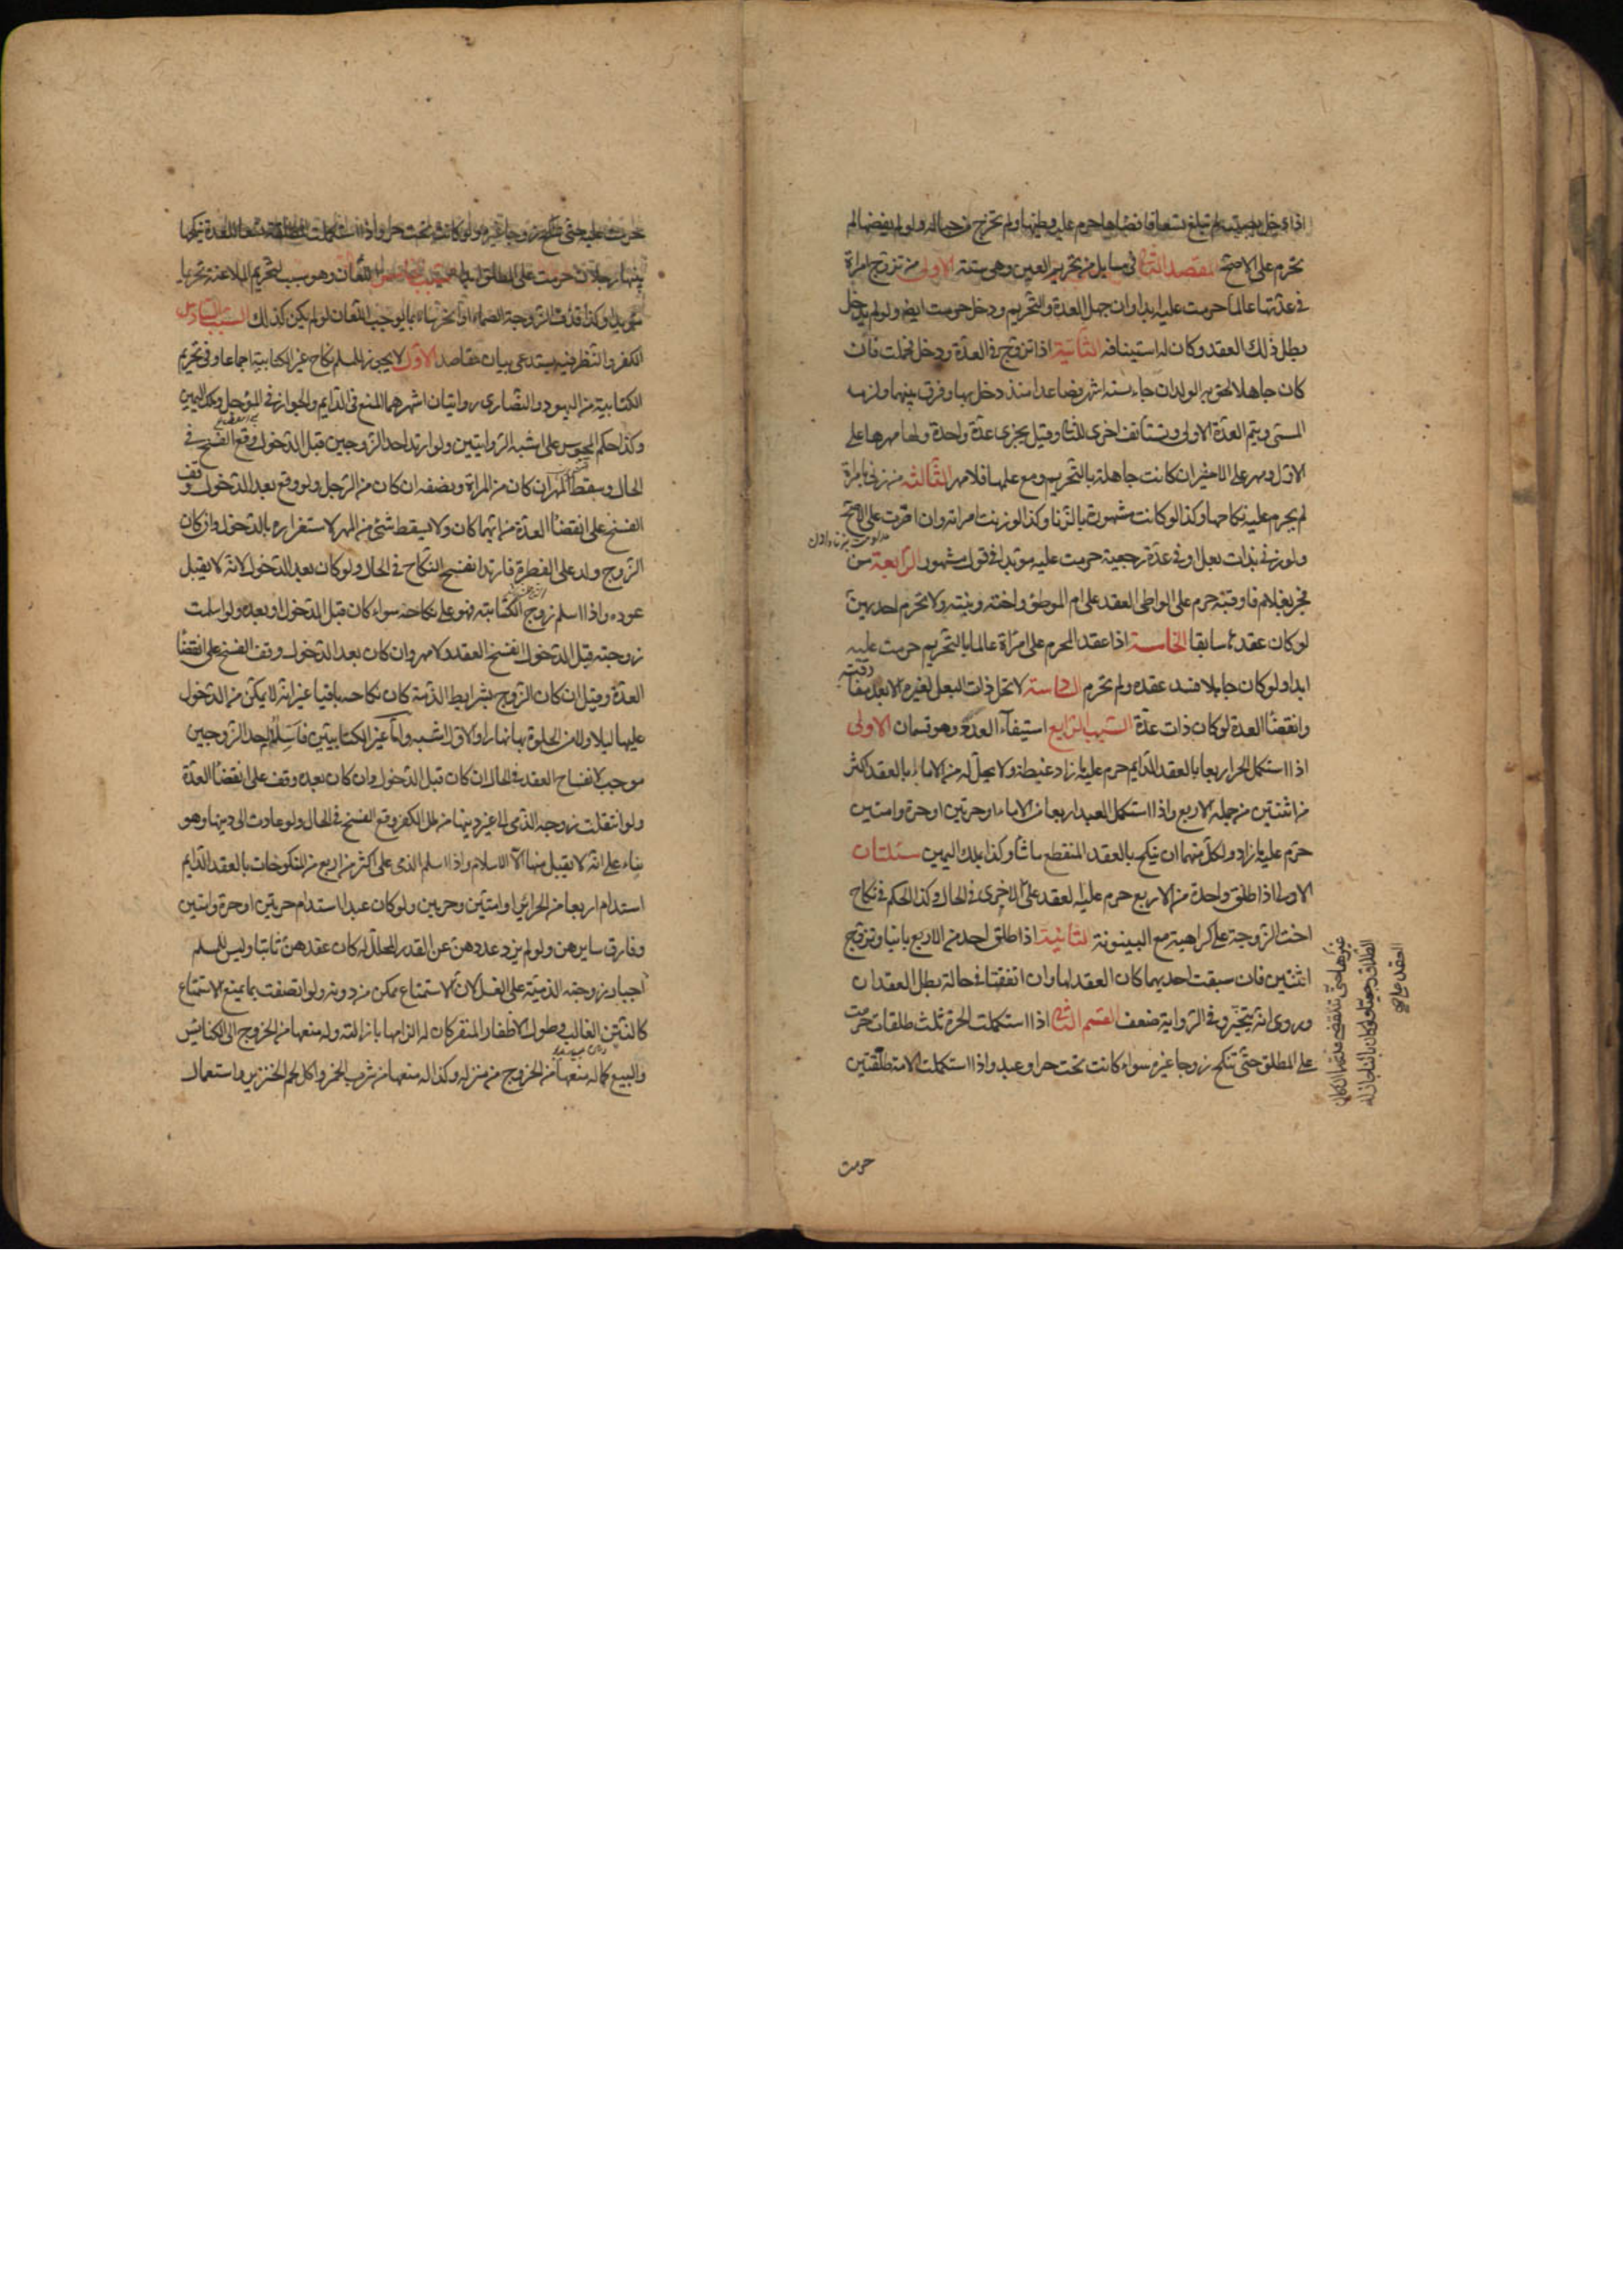 اذا دخل بصبية لم تبلغ تسعا فافضاها حرم عليه وطيها ولم تخرج من حباله ولو لم يفضها لم
تحرم على الاصح المقصد الثانى فى مسايل من تحريم العين وهى ستة الاولى من تزوج امراة
فى عدتها عالما حرمت عليه ابدا وان جهل العدة والتحريم ودخل حرمت ايضا ولو لم يدخل
بطل ذلك العقد وكان له استينافه الثانية اذا تزوج فى العدة ودخل فحملت فان
كان جاهلا لحق به الولد ان جاء لستة اشهر فصاعدا منذ دخل بها وفرق بينهما ولزمه
المسمى ويتم العدة الاولى وتستأنف اخرى للثانى وقيل يجزى عدة واحدة ولها مهرها على
الاول ومهر على الاخير ان كانت جاهلة بالتحريم ومع علمها فلا مهر الثالثة من زنى بامراة
لم يحرم عليه نكاحها وكذا لو كانت مشهورة بالزنا وكذا لو زنت امراته وان اصرت على الاصح
ولو زنى بذات بعل او فى عدة رجعية حرمت عليه مؤبدا فى قول مشهور الرابعة من
فجر بغلام فاوقبه حرم على الواطى العقد على ام الموطوء واخته وبنته ولا تحرم احديهن
لو كان عقدها سابقا الخامسة اذا عقد المحرم على امراة عالما بالتحريم حرمت عليه
ابدا ولو كان جاهلا فسد عقده ولم تحرم السادسة لا تحل ذات البعل لغيره الا بعد مفارقته
وانقضاء العدة لو كان ذات عدة السبب الرابع استيفاء العدد وهو قسمان الاولى
اذا استكمل الحر اربعا بالعقد الدايم حرم عليه ما زاد غبطة ولا يحل له من الاماء بالعقد اكثر
من اثنتين من جملة الاربع واذا استكمل العبد اربعا من الاماء او حرتين او حرة وامتين
حرم عليه ما زاد ولكل منهما ان ينكح بالعقد المنقطع ما شاء وكذا بملك اليمين مسئلتان
الاولى اذا طلق واحدة من الاربع حرم عليه العقد على الاخرى فى الحال وكذا الحكم فى نكاح
اخت الزوجة على كراهية مع البينونة الثانية اذا طلق احد من الاربع باينا وتزوج
اثنتين فان سبقت احديهما كان العقد لها وان اتفقتا فى حالة بطل العقدان
وروى انه يتخير وفى الرواية ضعف القسم الثانى اذا استكملت الحرة ثلث طلقات حرمت
على المطلق حتى تنكح زوجا غيره سواء كانت تحت حر او عبد واذا استكملت الامة طلقتين
حرمت
حرمت عليه حتى تنكح زوجا غيره ولو كانت تحت حر واذا استكملت المطلقة تسعا للعدة ينكحها
بينها رجلان حرمت على المطلق ابدا السبب الخامس اللعان وهو سبب لتحريم الملاعنة تحريما
مؤبدا وكذا قذف الزوجة الصماء او الخرساء بما يوجب اللعان لو لم يكن كذلك السبب السادس
الكفر والنظر فيه يستدعى بيان مقاصد الاول لا يجوز للمسلم نكاح غير الكتابية اجماعا وفى تحريم
الكتابية من اليهود والنصارى روايتان اشهرهما المنع فى الدايم والجواز فى المؤجل وملك اليمين
وكذا حكم المجوس على اشبه الروايتين ولو ارتد احد الزوجين قبل الدخول وقع الفسخ فى
الحال وسقط المهر ان كان من المراة ونصفه ان كان من الرجل ولو وقع بعد الدخول وقف
الفسخ على انقضاء العدة من ايهما كان ولا يسقط شئ من المهر لاستقراره بالدخول وان كان
الزوج ولد على الفطرة فارتد انفسخ النكاح فى الحال ولو كان بعد الدخول لانه لا يقبل
عوده واذا اسلم زوج الكتابية فهو على نكاحه سواء كان قبل الدخول او بعده ولو اسلمت
زوجته قبل الدخول انفسخ العقد ولا مهر وان كان بعد الدخول وقف الفسخ على انقضاء
العدة وقيل ان كان الزوج بشرايط الذمة كان نكاحه باقيا غير انه لا يمكن من الدخول
عليها ليلا ولا من الخلوة بها نهارا والاول اشبه واما غير الكتابيين فاسلام احد الزوجين
موجب لانفساح العقد فى الحال ان كان قبل الدخول وان كان بعده وقف على انقضاء العدة
ولو انتقلت زوجة الذمى الى غير دينها من ملل الكفر وقع الفسخ فى الحال ولو عادت الى دينها وهو
بناء على انه لا يقبل منها الا الاسلام واذا اسلم الذمى على اكثر من اربع من المنكوحات بالعقد الدايم
استدام اربعا من الحراير او امتين وحرتين ولو كان عبدا استدام حرتين او حرة وامتين
وفارق سايرهن ولو لم يزد عددهن عن القدر المحلل له كان عقدهن ثابتا وليس للمسلم
اجبار زوجته الذمية على الغسل لان الاستمتاع ممكن من دونه ولو اتصفت بما يمنع الاستمتاع
كالنتن الغالب وطول الاظفار المنفر كان له الزامها بازالته وله منعها من الخروج الى الكنايس
والبيع كما له منعها من الخروج من منزله وكذا له منعها من شرب الخمر واكل لحم الخنزير واستعمال